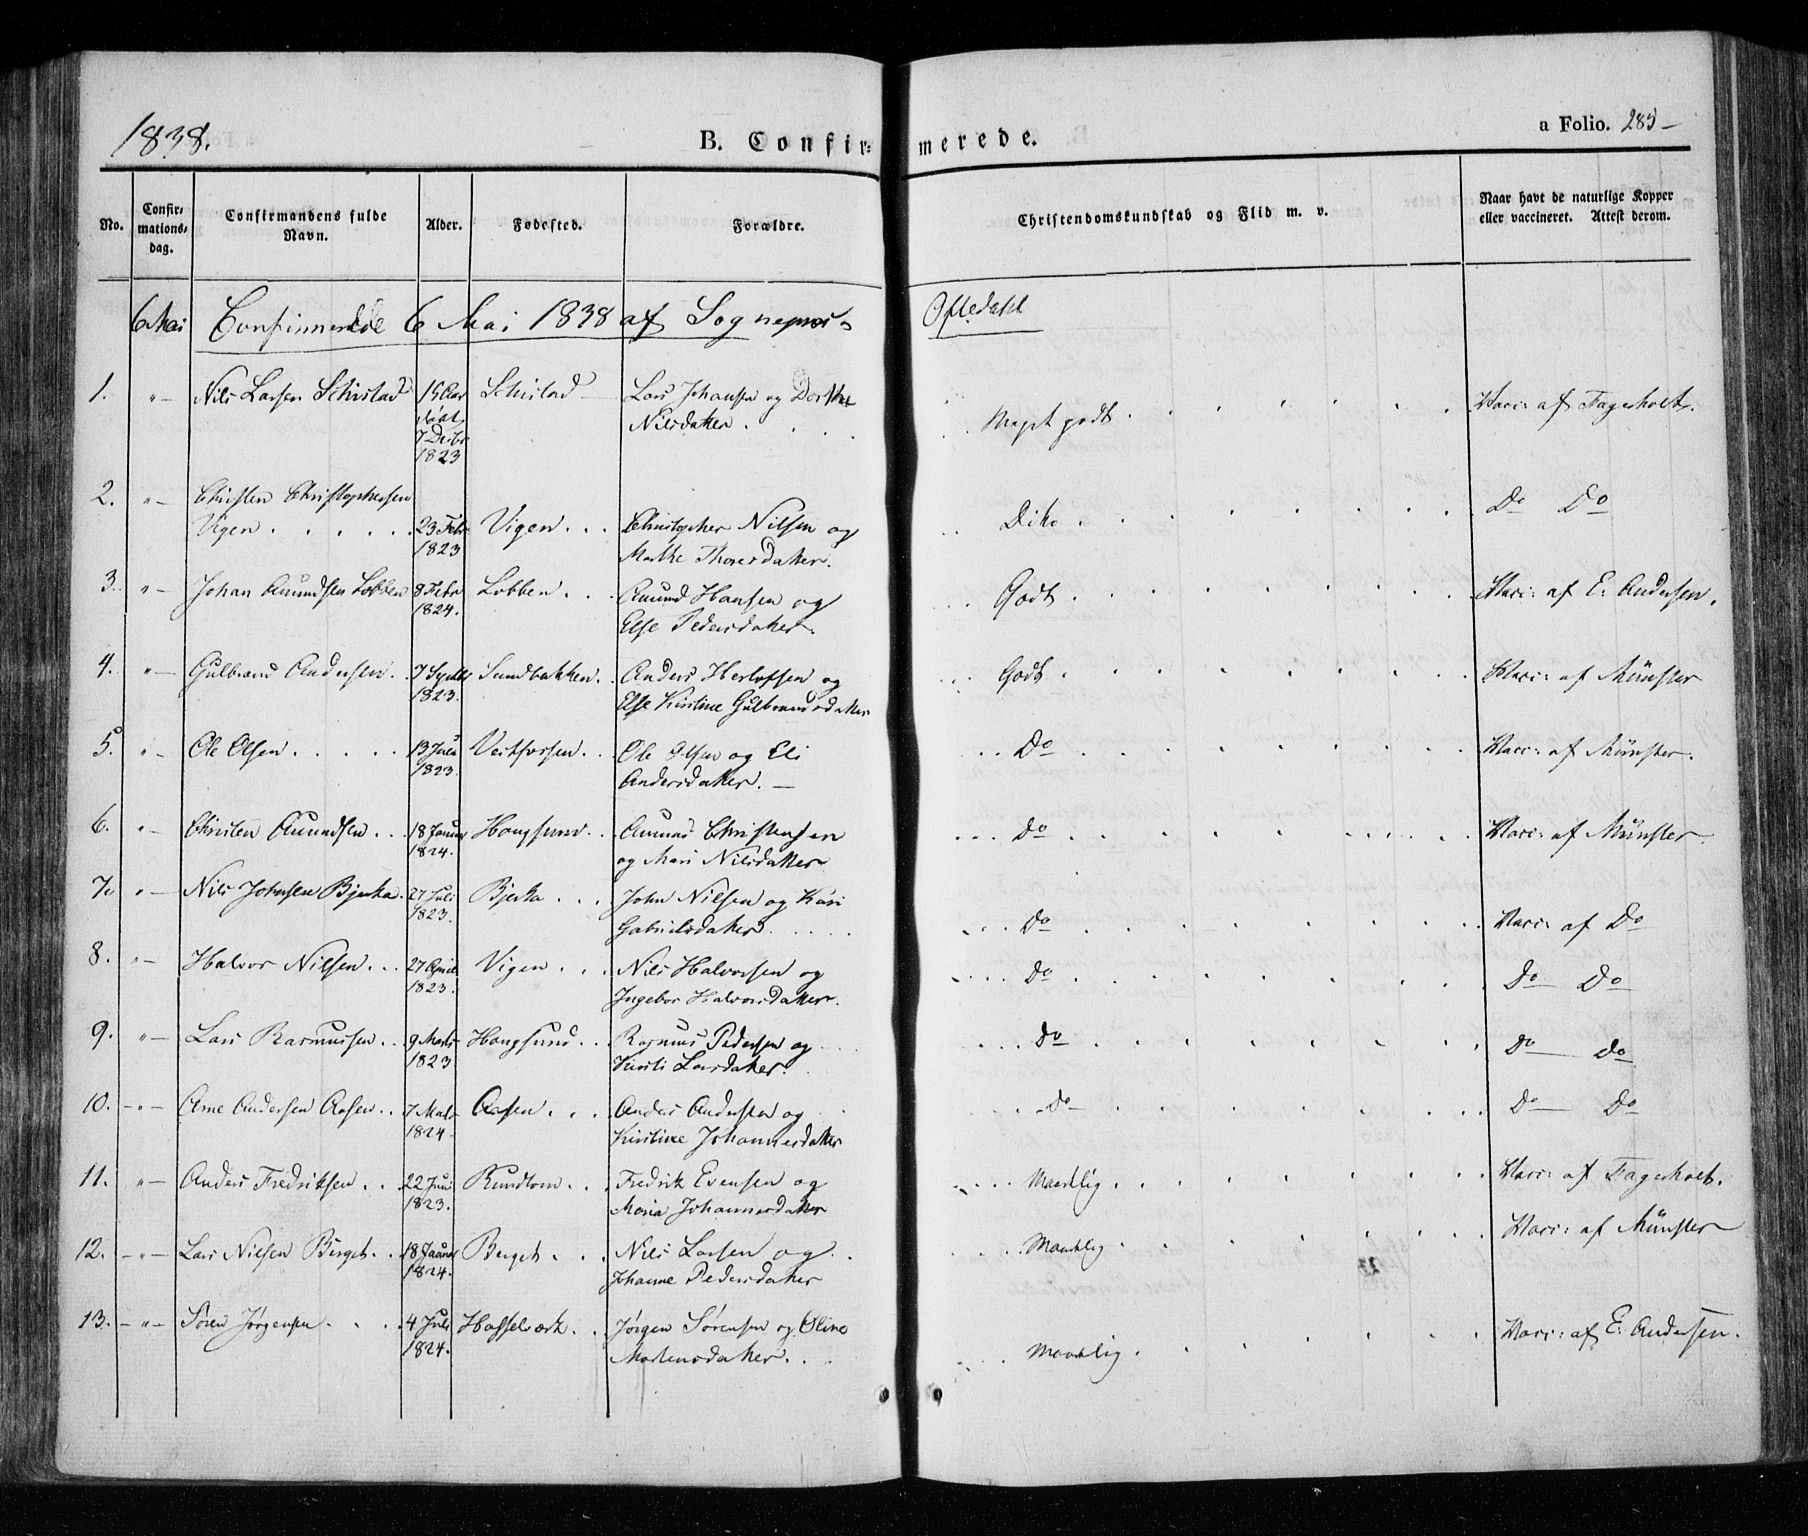 1838.
B. Confir- merede.
a Folio. 285
No. Confirmationsdag. Confirmandens fulde Navn. Alder. Fødested. Forældre. Christendomskundskab og Flid m. v. Naar havt de naturlige Kopper eller vaccineret. Attest derom.
6 Mai Confirmerede 6 Mai 1838 af Sognepræst Oftedahl
1. " Nils Larsen Schistad 15 Aar født 7 Decbr 1823 Schistad Lars Johansen og Dorthe Nilsdatter Meget godt Vacc: af Fagerholt.
2. " Christen Christophersen Vigen 23 Febr 1823 Vigen Christopher Nilsen og Marthe Thoresdatter. Dito Do Do
3. " Johan Amundsen Lobben 8 Febr 1824. Lobben Amund Hansen og Else Pedersdatter. Godt Vacc: af E: Andersen.
4. " Gulbrand Andersen 7 1823. Sundbakken Anders Herlofsen og Else Kirstine Gulbrandsdatter Godt Vacc: af Münster
5. " Ole Olsen 13 Juli 1823. Vestfossen Ole Olsen og Eli Andersdatter. Do Vacc: af Münster.
6. " Christen Amundsen 18 Januar 1824. Hougsund Amund Christensen og Mari Nilsdatter Do Vacc: af Münster
7. " Nils Johnsen Bjerka 27 Juli 1823. Bjerka John Nilsen og Kari Gabrielsdatter Do Vacc: af Do
8. " Halvor Nilsen 27 April 1823. Vigen Nils Halvorsen og Ingebor Halvorsdatter. Do Do Do
9. " Lars Rasmussen 9 Marts 1823 Hougsund Rasmus Pedersen og Kirsti Larsdatter. Do Do Do
10. " Arne Andersen Aasen 7 1824 Aasen Anders Andersen og Kirstine Johannesdatter Do Do Do
11. " Anders Fredriksen 22 Juni 1823. Rundtom Fredrik Evensen og Maria Johannesdatter Maadelig Vacc: af Fagerholt.
12. " Lars Nilsen Berget 18 Januar 1824. Berget Nils Larsen og Johanne Pedersdatter Maadelig Vacc: af Münster
13. " Søren Jørgensen 4 Juli 1824. Hasselværk Jørgen Sørensen og Oline Mortensdatter. Maadelig Vacc: af E: Andersen.